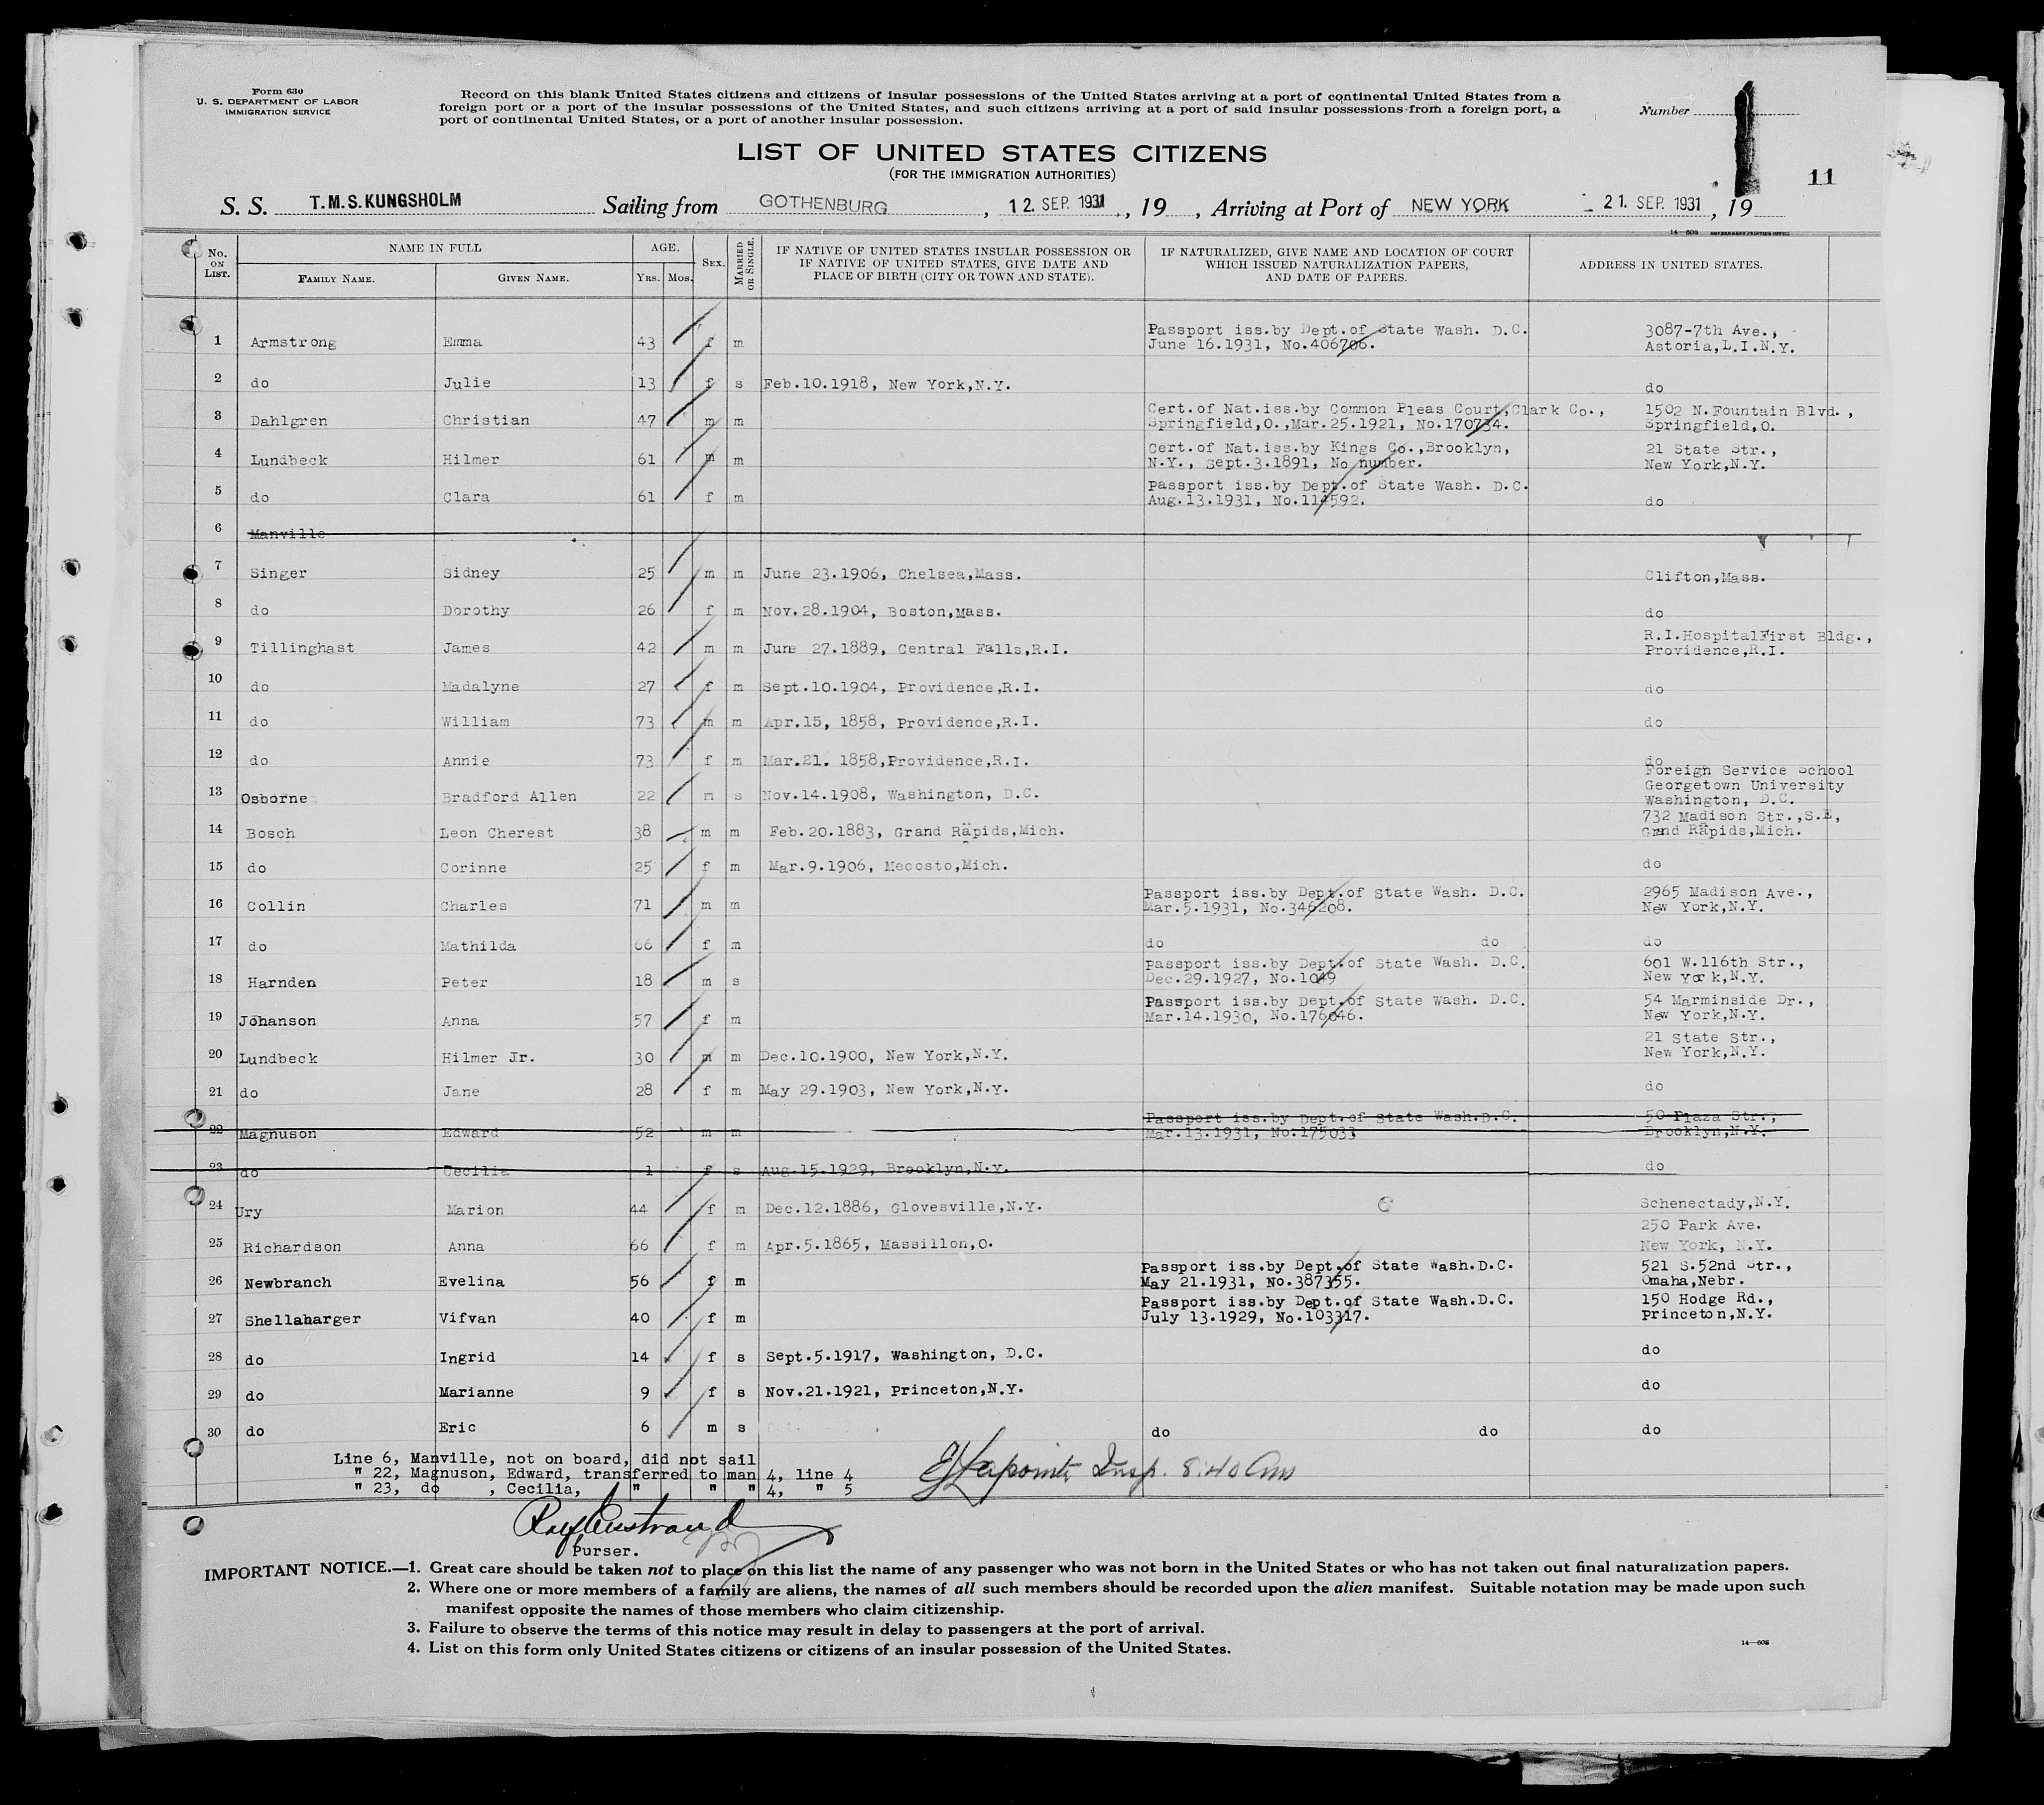 Form 630
U. S. DEPARTMENT OF LABOR
IMMIGRATION SERVICE
Record on this blank United States citizens and citizens of insular possessions of the United States arriving at a port of continental United States from a
foreign port or a port of the insular possessions of the United States, and such citizens arriving at a port of said insular possessions from a foreign port, a
port of continental United States, or a port of another insular possession.
Number
LIST OF UNITED STATES CITIZENS
(FOR THE IMMIGRATION AUTHORITIES)
11
S. S. T.M.S.KUNGSHOLM Sailing from GOTHENBURG, 12. SEP. 1931, 19 , Arriving at Port of NEW YORK 21. SEP. 1931, 19
14-608 GOVERNMENT PRINTING OFFICE
No. ON LIST. NAME IN FULL AGE. SEX. MARRIED OR SINGLE. IF NATIVE OF UNITED STATES INSULAR POSSESSION OR IF NATIVE OF UNITED STATES, GIVE DATE AND PLACE OF BIRTH (CITY OR TOWN AND STATE). IF NATURALIZED, GIVE NAME AND LOCATION OF COURT WHICH ISSUED NATURALIZATION PAPERS, AND DATE OF PAPERS. ADDRESS IN UNITED STATES.
FAMILY NAME. GIVEN NAME. YRS. MOS.
1 Armstrong Emma 43 f m Passport iss.by Dept.of State Wash. D.C. June 16.1931, No.406706. 3087-7th Ave., Astoria,L.I.N.Y.
2 do Julie 13 f s Feb.10.1918, New York,N.Y. do
3 Dahlgren Christian 47 m m Cert.of Nat.iss.by Common Pleas Court,Clark Co., Springfield,O.,Mar.25.1921, No.170734. 1502 N.Fountain Blvd., Springfield,O.
4 Lundbeck Hilmer 61 m m Cert.of Nat.iss.by Kings Co.,Brooklyn, N.Y., Sept.3.1891, No number. 21 State Str., New York,N.Y.
5 do Clara 61 f m Passport iss.by Dept.of State Wash. D.C. Aug.13.1931, No.114592. do
6 Manville
7 Singer Sidney 25 m m June 23.1906, Chelsea,Mass. Clifton,Mass.
8 do Dorothy 26 f m Nov.28.1904, Boston,Mass. do
9 Tillinghast James 42 m m June 27.1889, Central Falls,R.I. R.I.HospitalFirst Bldg., Providence,R.I.
10 do Madalyne 27 f m Sept.10.1904, Providence,R.I. do
11 do William 73 m m Apr.15, 1858, Providence,R.I. do
12 do Annie 73 f m Mar.21. 1858,Providence,R.I. do
13 Osborne Bradford Allen 22 m s Nov.14.1908, Washington, D.C. Foreign Service School Georgetown University Washington, D.C.
14 Bosch Leon Cherest 38 m m Feb.20.1883, Grand Rapids,Mich. 732 Madison Str.,S.E, Grand Rapids,Mich.
15 do Corinne 25 f m Mar.9.1906, Mecosto,Mich. do
16 Collin Charles 71 m m Passport iss.by Dept.of State Wash. D.C. Mar.5.1931, No.346208. 2965 Madison Ave., New York,N.Y.
17 do Mathilda 66 f m do do do
18 Harnden Peter 18 m s Passport iss.by Dept.of State Wash. D.C. Dec.29.1927, No.1049 601 W.116th Str., New York,N.Y.
19 Johanson Anna 57 f m Passport iss.by Dept.of State Wash. D.C. Mar.14.1930, No.176046. 54 Marminside Dr., New York,N.Y.
20 Lundbeck Hilmer Jr. 30 m m Dec.10.1900, New York,N.Y. 21 State Str., New York,N.Y.
21 do Jane 28 f m May 29.1903, New York,N.Y. do
22 Magnuson Edward 52 m m Passport iss.by Dept.of State Wash.D.C. Mar.13.1931, No.175033 50 Plaza Str., Brooklyn,N.Y.
23 do Cecilia 1 f s Aug.15.1929, Brooklyn,N.Y. do
24 Ury Marion 44 f m Dec.12.1886, Glovesville,N.Y. Schenectady,N.Y.
25 Richardson Anna 66 f m Apr.5.1865, Massillon,O. 250 Park Ave. New York, N.Y.
26 Newbranch Evelina 56 f m Passport iss.by Dept.of State Wash.D.C. May 21.1931, No.387355. 521 S.52nd Str., Omaha,Nebr.
27 Shellabarger Vifvan 40 f m Passport iss.by Dept.of State Wash.D.C. July 13.1929, No.103317. 150 Hodge Rd., Princeton,N.Y.
28 do Ingrid 14 f s Sept.5.1917, Washington, D.C. do
29 do Marianne 9 f s Nov.21.1921, Princeton,N.Y. do
30 do Eric 6 m s do do do
Line 6, Manville, not on board, did not sail
" 22, Magnuson, Edward, transferred to man 4, line 4
" 23, do , Cecilia, " " " 4, " 5
Lapointe Insp. 8:40 Am
Purser.
IMPORTANT NOTICE.—1. Great care should be taken not to place on this list the name of any passenger who was not born in the United States or who has not taken out final naturalization papers.
2. Where one or more members of a family are aliens, the names of all such members should be recorded upon the alien manifest. Suitable notation may be made upon such
manifest opposite the names of those members who claim citizenship.
3. Failure to observe the terms of this notice may result in delay to passengers at the port of arrival.
4. List on this form only United States citizens or citizens of an insular possession of the United States.
14-608